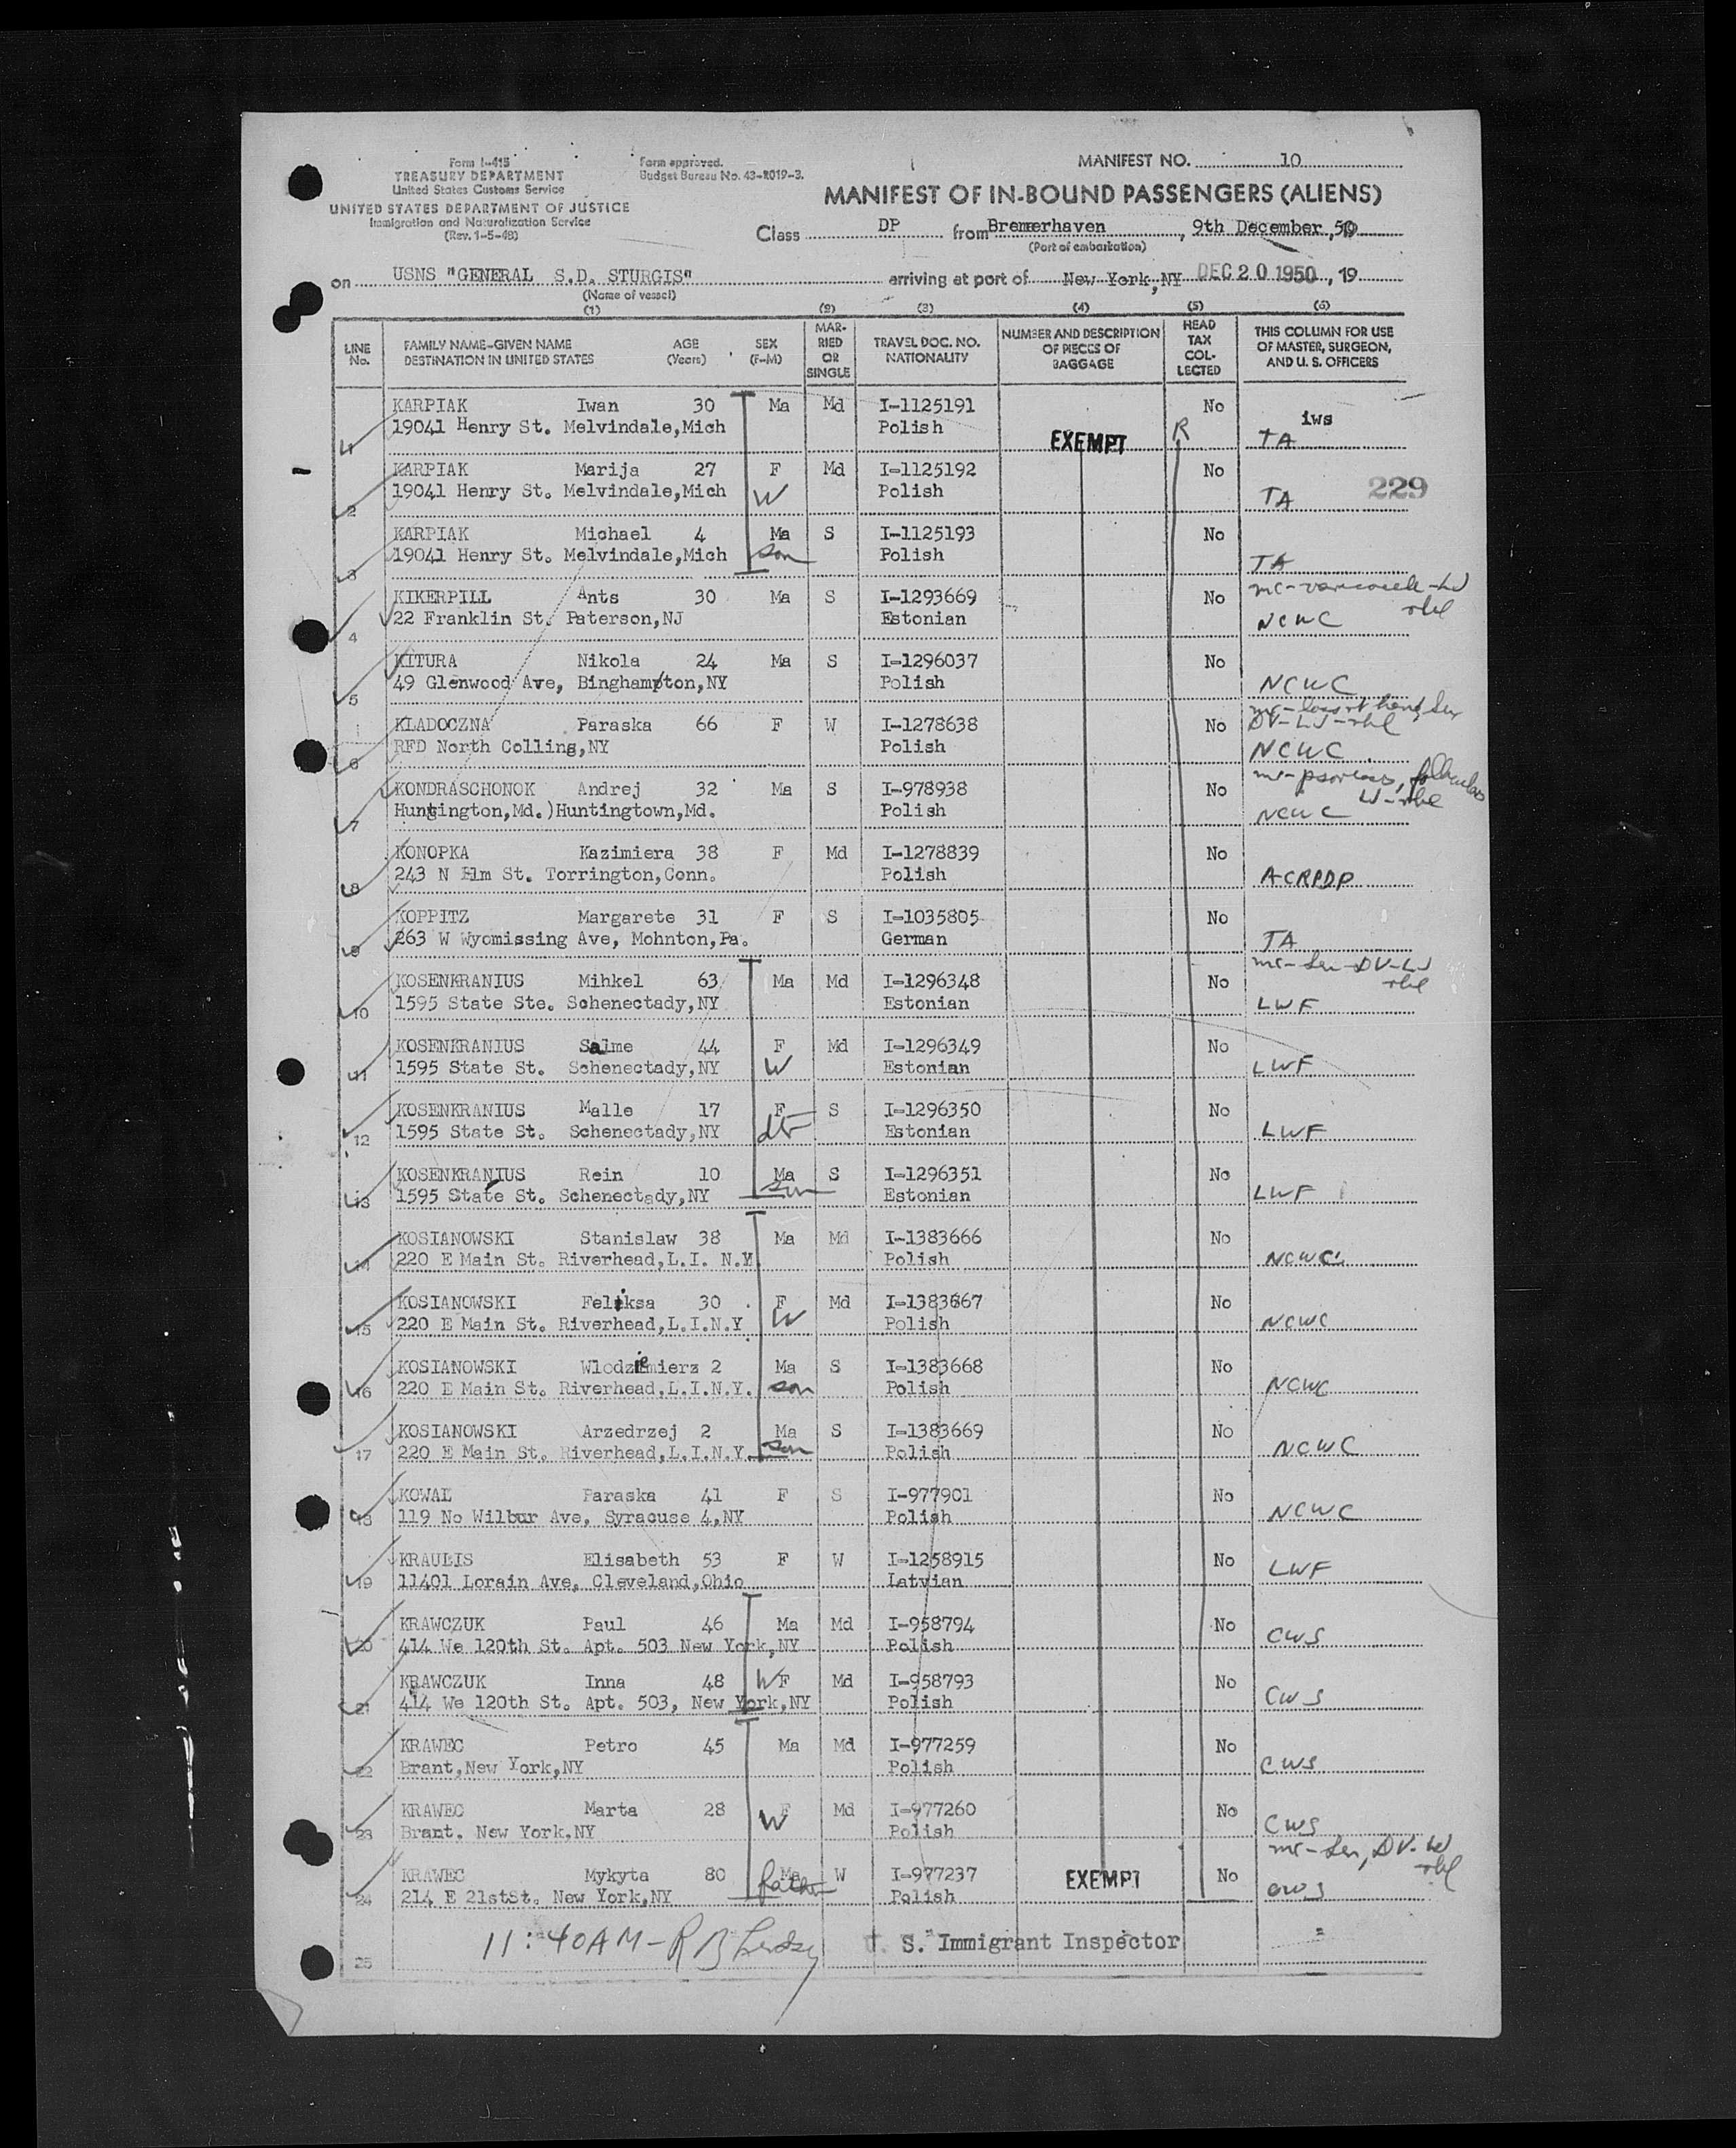 Form I-415
TREASURY DEPARTMENT
United States Customs Service
UNITED STATES DEPARTMENT OF JUSTICE
Immigration and Naturalization Service
(Rev. 1-5-48)
Form approved.
Budget Bureau No. 43-R019-3.
MANIFEST NO. 10
MANIFEST OF IN-BOUND PASSENGERS (ALIENS)
Class DP from Bremerhaven, 9th December, 50
(Port of embarkation)
on USNS "GENERAL S.D. STURGIS" arriving at port of New York, NY DEC 20 1950, 19
(Name of vessel)
(1) (2) (3) (4) (5) (6)
LINE No. FAMILY NAME-GIVEN NAME DESTINATION IN UNITED STATES AGE (Years) SEX (F-M) MARRIED OR SINGLE TRAVEL DOC. NO. NATIONALITY NUMBER AND DESCRIPTION OF PIECES OF BAGGAGE HEAD TAX COLLECTED THIS COLUMN FOR USE OF MASTER, SURGEON, AND U. S. OFFICERS
KARPIAK Iwan 30 Ma Md I-1125191 No iws
19041 Henry St. Melvindale,Mich Polish EXEMPT R TA
KARPIAK Marija 27 F Md I-1125192 No
2 19041 Henry St. Melvindale,Mich W Polish TA 229
KARPIAK Michael 4 Ma S I-1125193 No
3 19041 Henry St. Melvindale,Mich son Polish TA
KIKERPILL Ants 30 Ma S I-1293669 No mc-varicocele-LJ
4 22 Franklin St. Paterson,NJ Estonian NCWC
KITURA Nikola 24 Ma S I-1296037 No
5 49 Glenwood Ave, Binghampton,NY Polish NCWC
KLADOCZNA Paraska 66 F W I-1278638 No
6 RFD North Collins,NY Polish NCWC
KONDRASCHONOK Andrej 32 Ma S I-978938 No
7 Huntington,Md.)Huntingtown,Md. Polish NCWC
KONOPKA Kazimiera 38 F Md I-1278839 No
8 243 N Elm St. Torrington,Conn. Polish ACRPDP
KOPPITZ Margarete 31 F S I-1035805 No
9 263 W Wyomissing Ave, Mohnton,Pa. German TA
KOSENKRANIUS Mihkel 63 Ma Md I-1296348 No mc-Sen-DV-LJ
10 1595 State Ste. Schenectady,NY Estonian LWF
KOSENKRANIUS Salme 44 F Md I-1296349 No
11 1595 State St. Schenectady,NY W Estonian LWF
KOSENKRANIUS Malle 17 F S I-1296350 No
12 1595 State St. Schenectady,NY dtr Estonian LWF
KOSENKRANIUS Rein 10 Ma S I-1296351 No
13 1595 State St. Schenectady,NY son Estonian LWF
KOSIANOWSKI Stanislaw 38 Ma Md I-1383666 No
14 220 E Main St. Riverhead,L.I. N.Y. Polish NCWC
KOSIANOWSKI Feliksa 30 F Md I-1383667 No
15 220 E Main St. Riverhead,L.I.N.Y W Polish NCWC
KOSIANOWSKI Wlodzimierz 2 Ma S I-1383668 No
16 220 E Main St. Riverhead,L.I.N.Y. son Polish NCWC
KOSIANOWSKI Arzedrzej 2 Ma S I-1383669 No
17 220 E Main St. Riverhead,L.I.N.Y. son Polish NCWC
KOWAL Paraska 41 F S I-977901 No
18 119 No Wilbur Ave, Syracuse 4,NY Polish NCWC
KRAULIS Elisabeth 53 F W I-1258915 No
19 11401 Lorain Ave, Cleveland,Ohio Latvian LWF
KRAWCZUK Paul 46 Ma Md I-958794 No
20 414 We 120th St. Apt. 503 New York,NY Polish CWS
KRAWCZUK Inna 48 W F Md I-958793 No
21 414 We 120th St. Apt. 503, New York,NY Polish CWS
KRAWEC Petro 45 Ma Md I-977259 No
22 Brant,New York,NY Polish CWS
KRAWEC Marta 28 F Md I-977260 No
23 Brant. New York,NY W Polish CWS
KRAWEC Mykyta 80 Ma W I-977237 EXEMPT No mc-Sen, DV-LJ
24 214 E 21stSt. New York,NY father Polish CWS
25 11:40AM - R B U. S. Immigrant Inspector